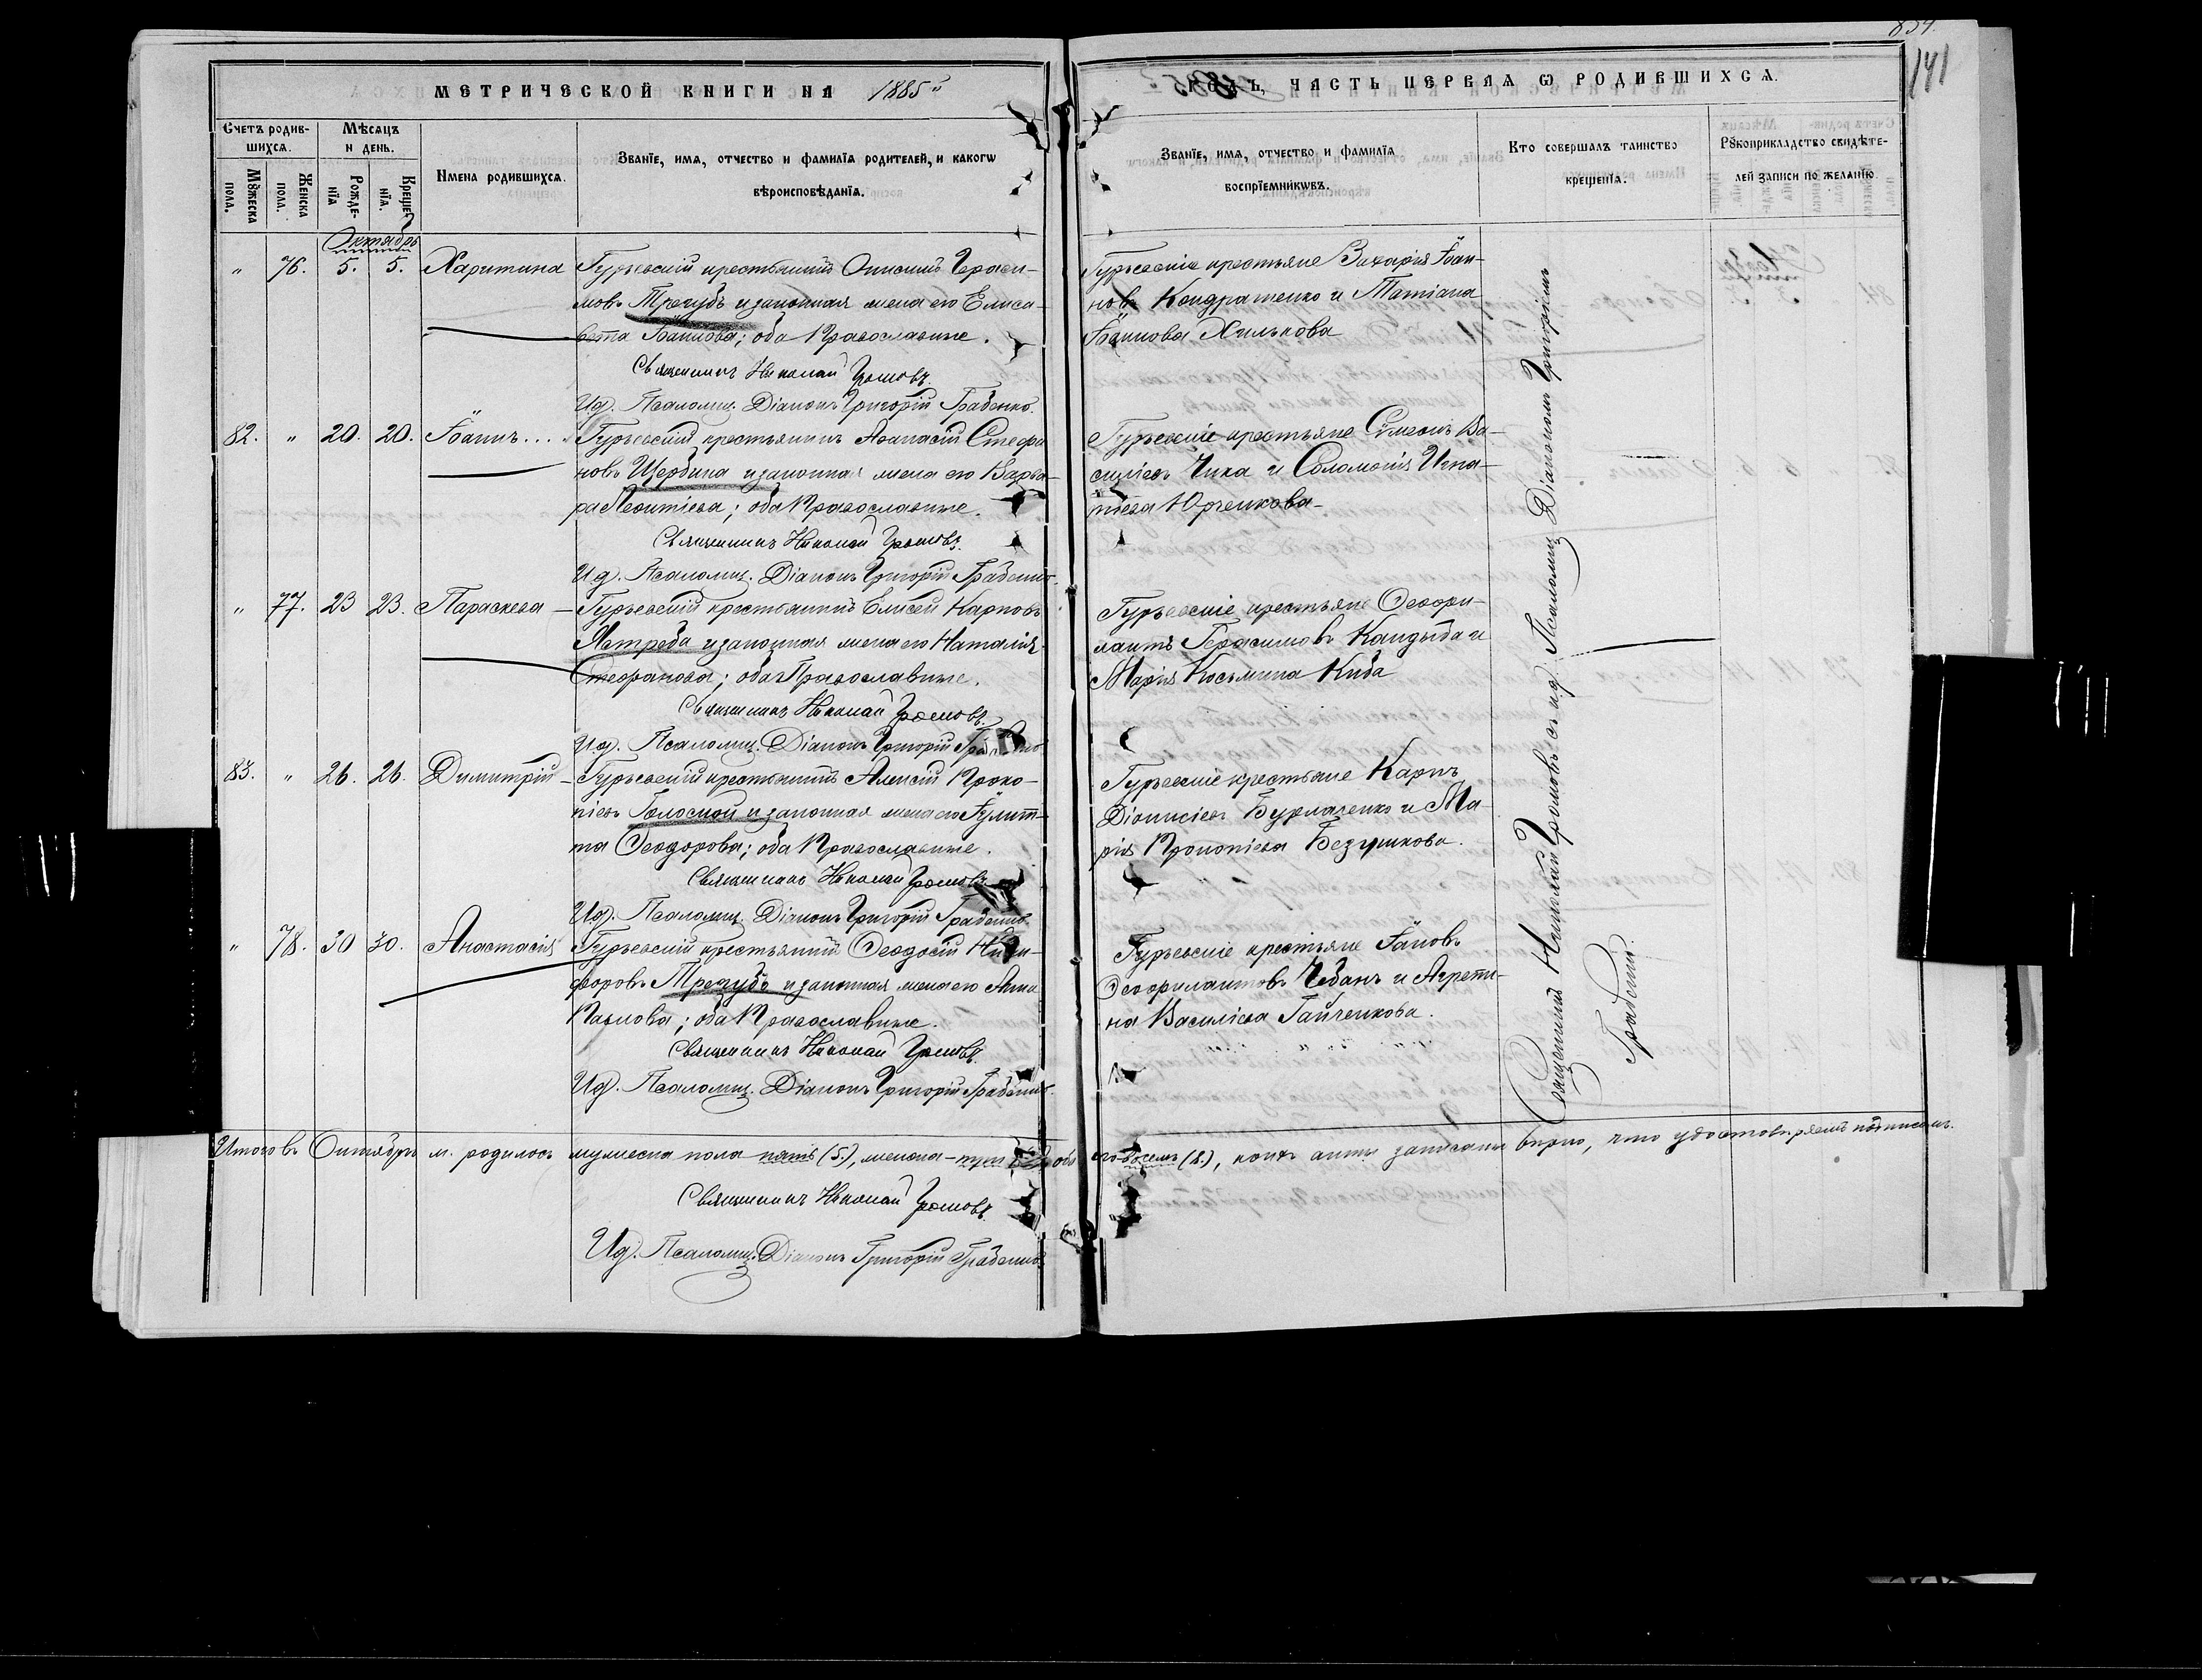 834.
141
МЕТРИЧЕСКОЙ КНИГИ НА 1885
ГОДЪ, ЧАСТЬ ПЕРВАЯ Ѡ РОДИВШИХСЯ.
Счетъ родив-
шихся.
Мѣсяцъ
и день.
Имена родившихся.
Званїе, имя, отчество и фамилїя родителей, и какогѡ
вѣроисповѣданїя.
Званїе, имя, отчество и фамилїя
воспрїемникѡвъ.
Кто совершалъ таинство
крещенїя.
Рꙋкоприкладство свидѣте-
лей записи по желанїю.
Мꙋжеска
пола.
Женска
пола.
Рожде-
нїя
Креще-
нїя.
Октябрь
" 76. 5. 5. Харитина Гурьевскій крестьянинъ Онисимъ Гераси-
мовъ Трегубъ и законная жена его Елиса-
вета Іоаннова; оба Православные.
Священникъ Николай Громовъ.
Ид. Псаломщ. Діаконъ Григорій Грабенко.
Гурьевскіе крестьяне Захарія Іоан-
новъ Кондратенко и Татіана
Іоаннова Хилькова
82. " 20. 20. Іоаннъ... Гурьевскій крестьянинъ Аѳанасій Стефа
новъ Щербина и законная жена его Варва-
ра Леонтіева; оба Православные.
Священникъ Николай Громовъ.
Ид. Псаломщ. Діаконъ Григорій
Гурьевскіе крестьяне Сѵмеонъ Ва-
силіевъ Чика и Соломонія Игна-
тіева Юрченкова-
" 77. 23 23. Параскева - Гурьевскій крестьянинъ Елисей Карповъ
Ястреба и законная жена его Наталія
Стефанова; оба Православные.
Священникъ Николай Громовъ.
Ид. Псаломщ. Діаконъ Григорій
Гурьевскіе крестьяне Ѳеофи-
лактъ Герасимовъ Кандыба и
Марія Косьмина Киба
83. " 26. 26. Димитрій - Гурьевскій крестьянинъ Алексій Проко-
піевъ Голосной и законная жена его Іулит-
та Ѳеодорова; оба Православные.
Священникъ Николай Громовъ
Ид. Псаломщ. Діаконъ Григорій
Гурьевскіе крестьяне Карпъ
Діонисіевъ Бурлаченко и Ма-
рія Прокопіева
" 78. 30 30. Анастасія Гурьевскій крестьянинъ Ѳеодосій Ники-
форовъ Трегубъ и законная жена его Анна
Павлова; оба Православные.
Священникъ Николай Громовъ.
Ид. Псаломщ. Діаконъ Григорій
Гурьевскіе крестьяне Іаковъ
Ѳеофилактовъ Чебанъ и Агрепи-
на Василіева Гайченкова.
Священникъ Николай Громовъ съ ид. Псаломщ. Діакономъ Григоріемъ
Итого въ Октябрѣ м. родилось мужеска пола пять (5.), женска - три
восемь (8.), коихъ акты записаны вѣрно, что удостовѣряемъ подписомъ.
Священникъ Николай Громовъ.
Ид. Псаломщ. Діаконъ Григорій